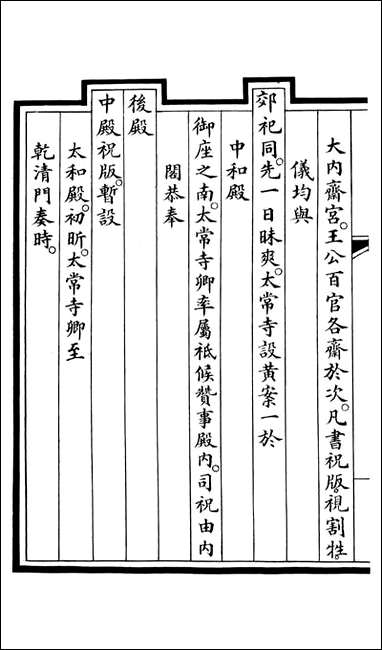 大内齋宮。王公百官各齋於次。凡書祝版。視割牲。
儀均與
郊祀同。先一日昧爽。太常寺設黃案一於
中和殿
御座之南。太常寺卿率屬祗候贊事殿内。司祝由内
閣恭奉
後殿
中殿祝版。暫設
太和殿。初昕。太常寺卿至
乾清門奏時。